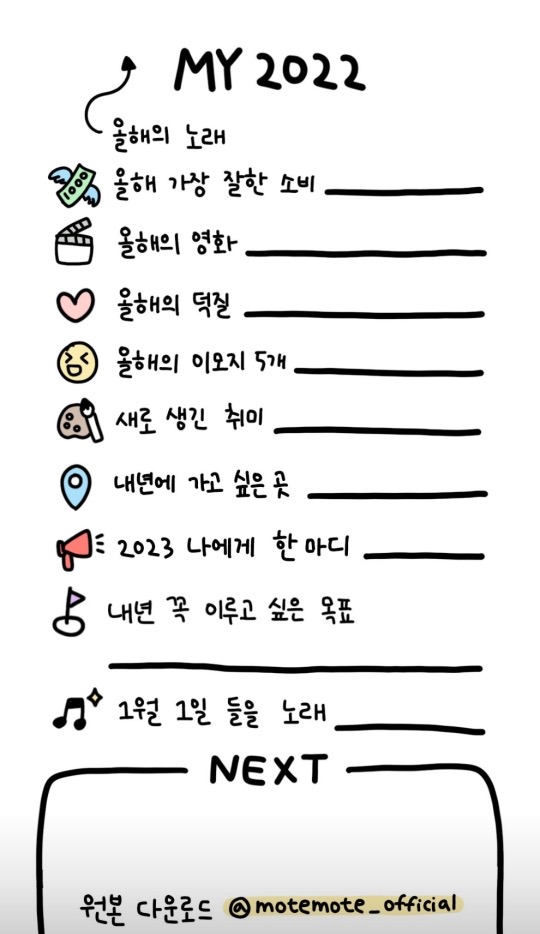 MY 2022
올해의 노래
올해 가장 잘한 소비
올해의 영화
올해의 덕질
올해의 이모지 5개
새로 생긴 취미
내년에 가고 싶은 곳
2023 나에게 한 마디
내년 꼭 이루고 싶은 목표
1월 1일 들을 노래
NEXT
원본 다운로드 @motemote_official